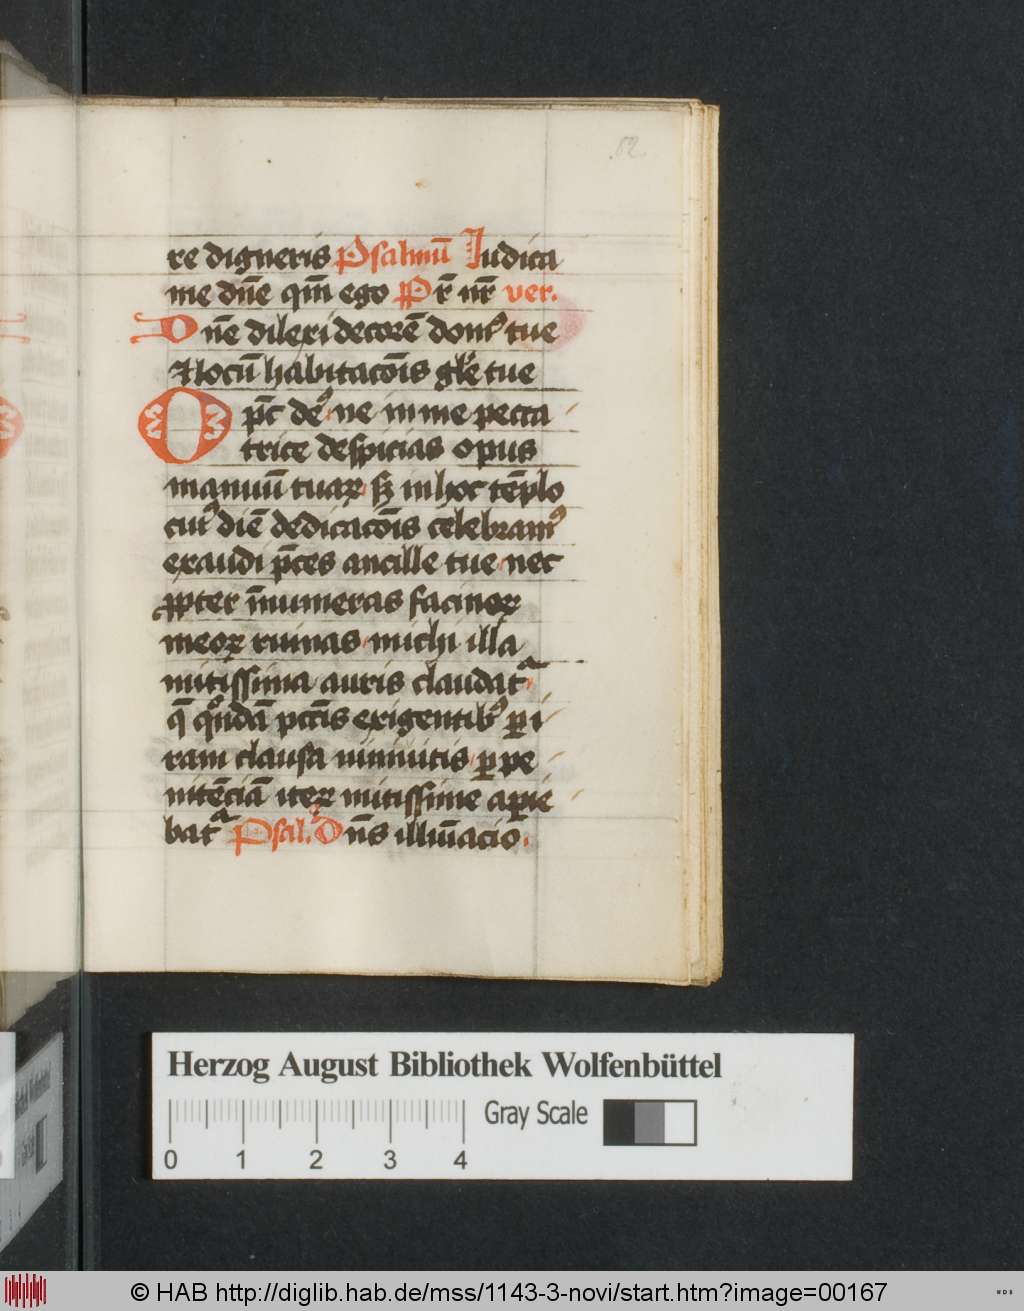 82
re digneris Psalmū Iudica
me dn̄e qm̄ ego Pr̄ nr̄ ver.
Dn̄e dilexi decorē domꝰ tue
Et locū habitacōis glē tue
O pr̄c deꝰ ne in me pecca
trice despicias opus
manuū tuaꝝ sꝫ in hoc tēplo
cuiꝰ diē dedicacōis celebramꝰ
exaudi p̄ces ancille tue nec
ꝓpter īnumeras facinoꝝ
meoꝝ ruinas michi illa
mitissima auris claudatᷣ
q̄ qͦndā pctīs exigentibꝰ ꝑ i
ram clausa niniuitis ꝑ pe
nitēciā iteꝝ mitissime aꝑie
batᷣ Psal. Dn̄s illūacio
Herzog August Bibliothek Wolfenbüttel
Gray Scale
0 1 2 3 4
© HAB http://diglib.hab.de/mss/1143-3-novi/start.htm?image=00167